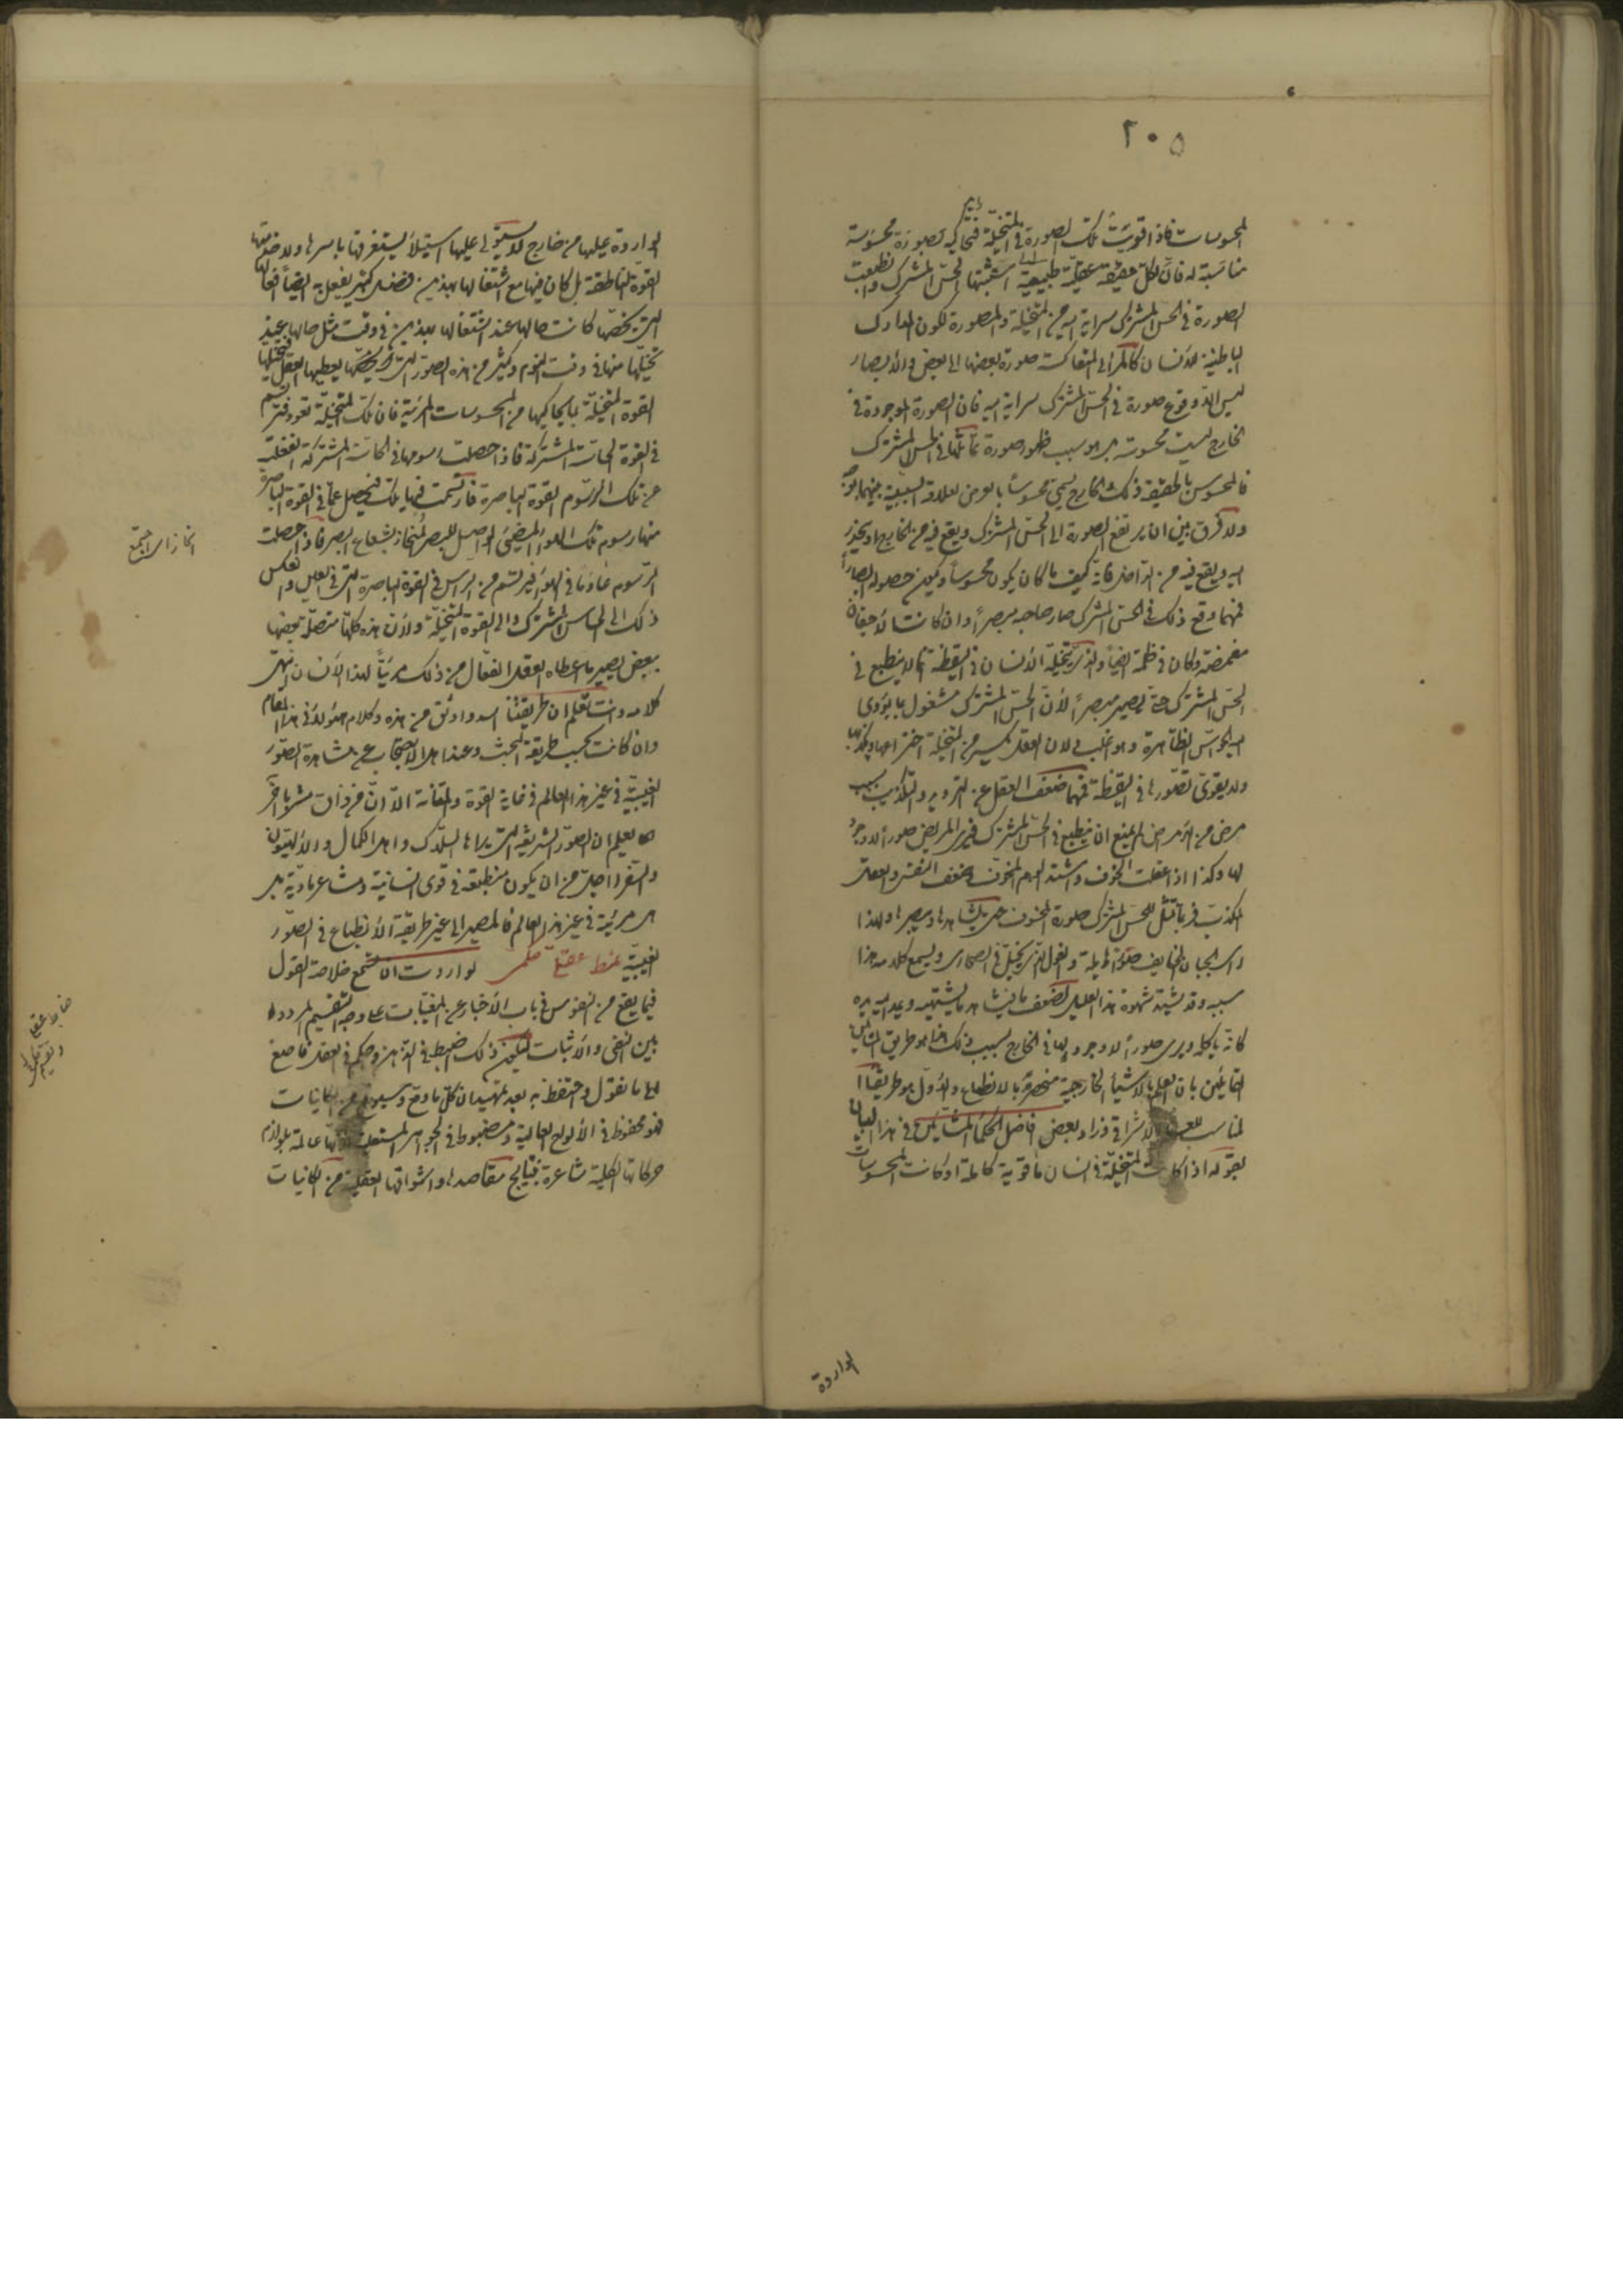 ٢٠٥
المحسوسات فاذا قويت تلك الصورة في المتخيلة فتحاكيه بصورة محسوسة
مناسبة له فان لكل حقيقة عقلية طبيعية استثبتها الحس المشترك وانطبعت
الصورة في الحس المشترك سراية اليه من المتخيلة والمصورة لكون المدارك
الباطنية للانسان كالمرائى المتعاكسة صورة بعضها الى بعض والابصار
ليس الا وقوع صورة في الحس المشترك سراية اليه فان الصورة الموجودة في
الخارج ليست محسوسة بل هو سبب ظهور صورة تماثلها في الحس المشترك
فالمحسوس بالحقيقة ذلك والخارج يسمى محسوسا بالعرض لعلاقة السببية بينهما
ولا فرق بين ان يرتفع الصورة الى الحس المشترك ويقع فيه من الخارج او ينحدر
اليه ويقع فيه من الداخل فانه كيف ما كان يكون محسوسا ويكون حصوله ابصارا
فمهما وقع ذلك في الحس المشترك صار صاحبه مبصرا وان كانت الاجفان
مغمضة وكان في ظلمة ايضا والذى يتخيله الانسان في اليقظة انما لا ينطبع في
الحس المشترك حتى يصير مبصرا لان الحس المشترك مشغول بما يؤدى
اليه الحواس الظاهرة وهو اغلب ولان العقل يكسر من المتخيلة اختراعها ويكذبها
ولا يقوى تصورها في اليقظة فمهما ضعف العقل عن الرد والتكذيب بسبب
مرض من الامراض لم يمنع ان ينطبع في الحس المشترك فيرى المريض صورا لا وجود
لها وكذا اذا غلب الخوف واشتد الوهم المخوف وضعف النفس والعقل
المكذب فربما تمثل للحس المشترك صورة المخوف حتى يشاهدها ويبصرها ولهذا
يرى الجبان الخايف صورة هايلة والغول الذى يتخيل في الصحارى ويسمع كلامه هذا
سببه وقد يشتد شهوة هذا العليل الضعيف فيشاهد ما يشتهيه ويمد اليه يده
كانه ياكله ويرى صورا لا وجود لها في الخارج بسبب ذلك هذا هو طريق المشائين
القائلين بان العلم بالاشياء الخارجية منحصرة بالانطباع والاول هو طريقنا
المناسب الاشراقي وزاد بعض افاضل الحكماء المشائين في هذا الباب
بقوله اذا كانت المتخيلة في انسان ما قوية كاملة وكانت المحسوسات
الواردة
الواردة عليها من خارج لا يستولى عليها استيلاء يستغرقها باسرها ولا خدمتها
القوة الناطقة بل كان فيها مع اشتغالها بهذين فضل كثير يفعل به ايضا افعالها
التى يخصها كانت حالها عند اشتغالها بهذين في وقت مثل حالها عند
تخيلها منها في وقت النوم وكثير من هذه الصور التى يعطيها العقل فيتخيلها
القوة المتخيلة بما يحاكيها من المحسوسات المرئية فان تلك المتخيلة تعود فترتسم
في القوة الحاسة المشتركة فاذا حصلت رسومها في الحاسة المشتركة انفعلت
عن تلك الرسوم القوة الباصرة فارتسمت فيها تلك فيحصل عما في القوة الباصرة
منها رسوم تلك الهواء المضئ المواصل للبصر المنحاز بشعاع البصر فاذا حصلت
الرسوم عادما في الهواء فيرتسم من الرأس في القوة الباصرة التى في العين وانعكس
ذلك الى الحاس المشترك والى القوة المتخيلة ولان هذه كلها متصلة بعضها
ببعض يصير ما اعطاه العقل الفعال من ذلك مرئيا لهذا الانسان انتهى
كلامه وانت تعلم ان طريقتنا اسد واوثق من هذه وكلام هؤلاء في هذا المقام
وان كانت بحسب طريقة البحث وعند اهل الاحتجاب عن مشاهدة الصور
الغيبية في غير هذا العالم في غاية القوة والمتانة الا ان من ذاق مشربا آخر
يعلم ان الصور الشريفة التى يراها السلاك واهل الكمال والالهيون
والسفراء اجل من ان يكون منطبعة في قوى انسانية ومشاعر مادية بل
هى مرئية في غير هذا العالم فالمصير الى غير طريقة الانطباع في الصور
الغيبية ضبط عقلى حكمى لو اردت ان تسمع خلاصة القول
فيما يقع من النفوس في باب الاخبار عن المغيبات على وجه التقسيم المردد
بين النفى والاثبات ليكون ذلك اضبط في الذهن واحكم في العقل فاصغ
الى ما نقول واحتفظ به بعد تمهيد ان كل ما وقع وسيقع من الكائنات
فهو محفوظ في الالواح العالية ومضبوط في الجواهر المستعلية لانها عالمة بلوازم
حركاتها الكلية شاعرة بنتايج مقاصدها واشواقها العقلية من الكائنات
انحاز اى اجتمع
ضابط عقلى
وتقسيم حكمى